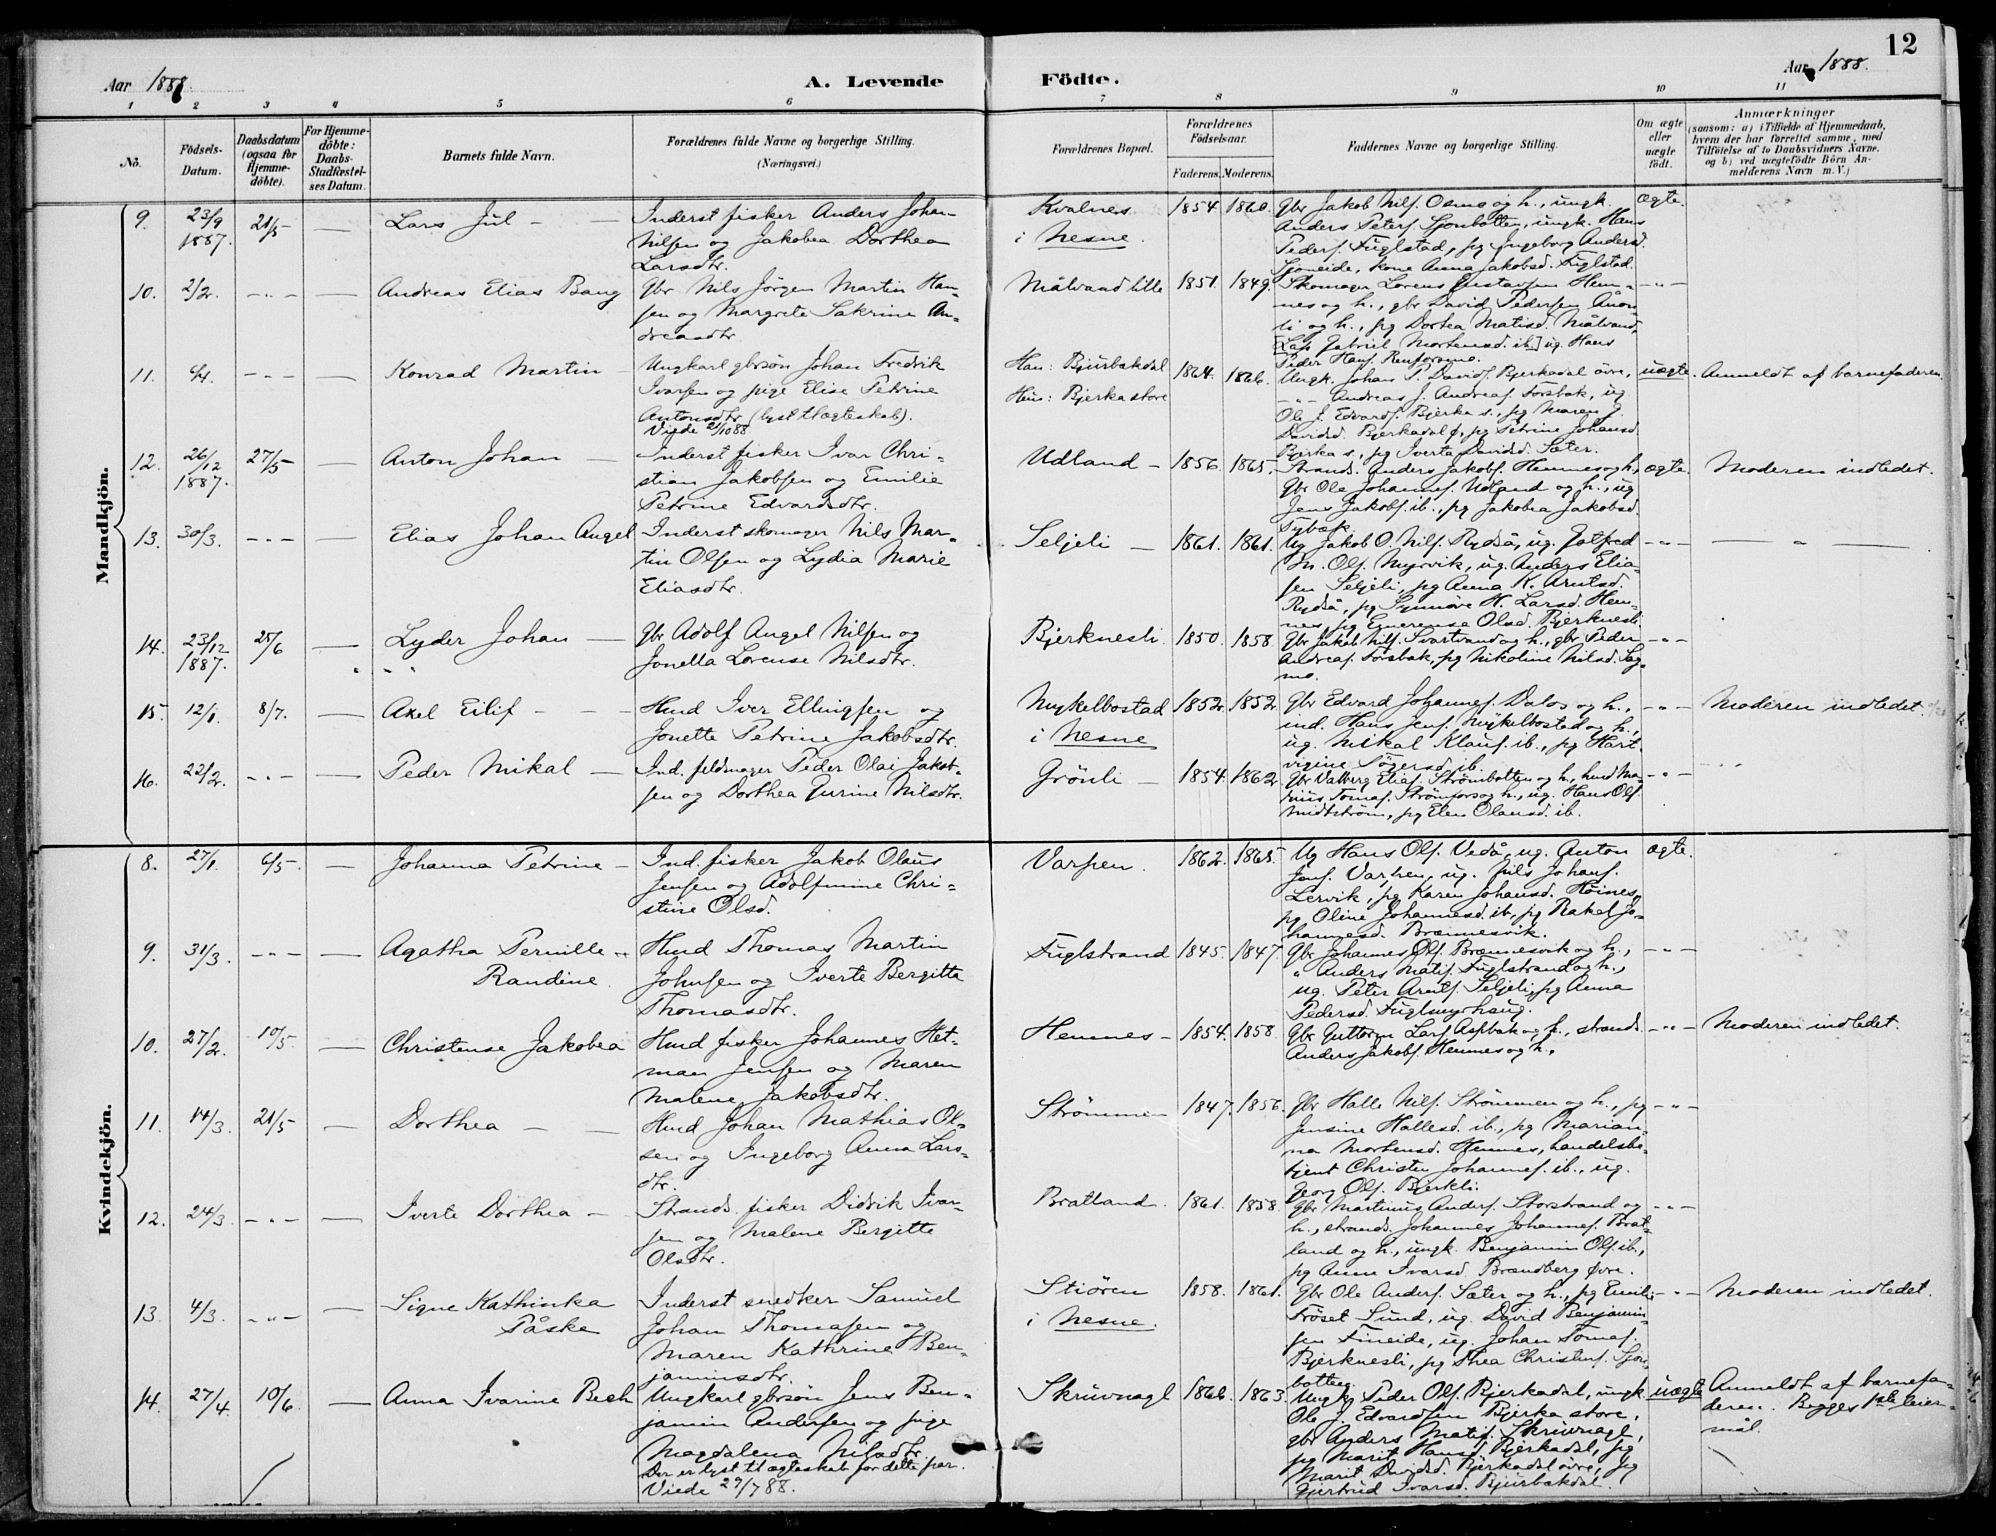 12
Aar 1888.
A. Levende Födte.
Aar 1888.
1 2 3 4 5 6 7 8 9 10 11
Nô.
Födsels-Datum.
Daabsdatum (ogsaa för Hjemme-döbte).
For Hjemme-döbte: Daabs-Stadfæstel-ses Datum.
Barnets fulde Navn.
Forældrenes fulde Navne og borgerlige Stilling.
(Næringsvei.)
Forældrenes Bopæl.
Forældrenes Födselsaar.
Faderens. Moderens.
Faddernes Navne og borgerlige Stilling.
Om ægte eller uægte födt.
Anmærkninger
(saasom: a) i Tilfælde af Hjemmedaab,
hvem der har forrettet samme, med
Tilföielse af to Daabsvidners Navne,
og b) ved uægtefödte Börn An-
melderens Navn m. V.)
Mandkjön.
9. 23/9 1887. 21/5 — Lars Jul — Inderst fisker Anders Johan
Nilsen og Jakobea Dorthea
Larsdtr.
Kvalnes
i Nesne.
1854. 1860.
Gbr Jakob Nils. Osmo og h., ungk.
Anders Peters. Sjonbotten, ungk. Hans
Peders. Fuglstad, pg Ingeborg Andersd.
Sjoneide, kone Anna Jakobsd. Fuglstad.
ægte.
10. 2/2. -"- — Andreas Elias Bang
Gbr Nils Jørgen Martin Han-
sen og Margrete Sakrine An-
dreasdtr
Målvand lille 1851. 1849.
Skomager Lorens Gustavsen Hem-
nes og h., gbr David Pedersen
li og h., pg Dorthea Matisd. Målvand,
[Lap Gabriel Mortensd. ib.] ug. Hans
Peder Hans. Renforsmo.
-"-
11. 4/4. -"- — Konrad Martin
Ungkarl gbrsøn Johan Fredrik
Ivarsen og pige Elise Petrine
Antonsdtr (lyst t. ægteskab).
Viede 21/10 88
Han: Bjurbakdal
Hun: Bjerka store
1864. 1866.
Ungk. Johan P. Davids. Bjerkadal øvre,
-"- Andreas J. Andreas. Forsbak, ug
Ole J. Edvards. Bjerka s., pg Maren J.
Davidsd. Bjerkadal ø., pg Petrine Johansd.
Bjerka s., pg Iverta Davidsd. Sæter.
uægte. Anmeldt af barnefaderen.
12. 26/12 1887. 27/5 — Anton Johan —
Inderst fisker Ivar Chri-
stian Jakobsen og Emilie
Petrine Edvardsdtr.
Udland — 1856. 1865.
Strands. Anders Jakobs. Hemnes og h.,
Gbr Ole Johannes. Udland og h., ug
Jens Jakobs. ib., pg Jakobea Jakobsd.
ægte. Moderen indledet.
13. 30/3. -"- — Elias Johan Angel
Inderst skomager Nils Mar-
tin Olsen og Lydia Marie
Eliasdtr.
Seljeli — 1861. 1861.
Ug Jakob O. Nils. Rydså, ug.
M. Ols. Myrvik, ug. Anders Elia-
sen Seljeli, pg Anna K. Arntsd.
Rydså, pg Synnøve H. Larsd. Hem-
nes, pg Olsd. Bjerknesli
-"- — " —
14. 23/12 1887. 25/6 — Lyder Johan —
Gbr Adolf Angel Nilsen og
Jonetta Lorense Nilsdtr.
Bjerknesli. 1850. 1858.
Gbr Jakob Nils. Svartvand og h., gbr Peder
Andreas. Forsbak, pg Nikoline Nilsd. Seg-
mo.
-"-
15. 12/1. 8/7. — Axel Eilif —
Husd Iver Ellingsen og
Jonette Petrine Jakobsdtr.
Nykelbostad
i Nesne
1852. 1852.
Gbr Edvard Johannes. Dalos og h.,
ind. Hans Jens. Nykelbostad og h.,
ug. Mikal Klaus. ib., pg Hart-
vigine ib.
-"- Moderen indledet.
16. 22/2. -"- — Peder Mikal —
Ind. feldmager Peder Olai Jakob-
sen og Dorthea Nilsdtr.
Grönli — 1854. 1862.
Gbr Eliaf. Strømbotten og h., husd Ma-
rius Tomas. Strømfors og h., ug. Hans Ols.
Midtstrøm, pg Elen Olausd. ib.
-"-
Kvindekjön.
8. 27/1. 6/5. — Johanna Petrine —
Ind. fisker Jakob Olaus
Jensen og Adolfmine Chri-
stine Olsd.
Varpen. 1862. 1865.
Ug Hans Ols. Vedå, ug. Anton
Jens. Varpen, ug. Nils Johans.
Lervik, pg Karen Johansd. Höines,
pg Oline Johannesd. ib., pg Rakel Jo-
hannesd. Brænnesvik.
ægte.
9. 31/3. -"- — Agatha Pernille
Randine.
Husd Thomas Martin
Johnsen og Iverte Bergitta
Thomasdtr.
Fuglstrand 1845. 1847.
Gbr Johannes Ols. Brænnesvik og h.,
" Anders Matis. Fuglstrand og h.,
ug. Peter Arnts. Seljeli, pg Anna
Pedersd. Fuglmyrhaug.
-"-
10. 27/2. 10/5 — Christense Jakobea
Husd fisker Johannes Het-
man Jensen og Maren
Malene Jakobsdtr.
Hemnes — 1854. 1858.
Gbr Guttorm Lars. Aspbak og h., strands.
Anders Jakobs. Hemnes og h.
-"- Moderen indledet.
11. 14/3. 21/5 — Dorthea —
Husd Johan Mathias Ol-
sen og Ingeborg Anna Lars-
dtr.
Strömmen 1847. 1856.
Gbr Halle Nils. Strömmen og h., pg
Jensine Hallesd. ib., pg Marian-
na Mortensd. Hemnes, handelsbe-
tjent Christen Johannes. ib., ug.
Georg Ols. Bjerkli.
-"-
12. 24/3. -"- — Iverte Dorthea —
Strands. fisker Didrik Ivar-
sen og Malene Bergitte
Olsdtr.
Bratland. 1861. 1858.
Gbr Martinus Anders. Storstrand og
h., strands. Johannes Johannes. Brat-
land og h., ungk. Benjamin Ols. ib.,
pg Anne Ivarsd. Brændberg Øvre.
-"-
13. 4/3. -"- — Signe Kathinka
Påske
Inderst snedker Samuel
Johan Thomasen og
Maren Kathrine Ben-
jaminsdtr.
Stiören
i Nesne.
1858. 1861.
Gbr Ole Anders. Sæter og h., pg Emilie
Fröset Sund, ug. David Benjamin-
sen Fineide, ug. Johan Tomas.
Bjerknesli, pg Thea Christens. Sjon-
botten.
-"- Moderen indledet.
14. 27/4. 10/6. — Anna Ivarine Bech
Ungkarl gbrsøn Jens Ben-
jamin Andersen og pige
Magdalena Nilsdtr.
Der er lyst til ægteskab for dette par.
Viede 29/7 88.
Skruvnagl 1866. 1863.
Ungk. Peder Ols. Bjerkadal, ungk
Ole J. Edvardsen Bjerka store,
gbr Anders Matis. Skruvnagl,
pg Marit Hansd. Bjerkadal, pg
Marit Davidsd. Bjerkadal øvre, pg
Gjertrud Ivarsd. Bjurbakdal.
uægte Anmeldt af barnefa-
deren. Begges 1ste leier-
mål.